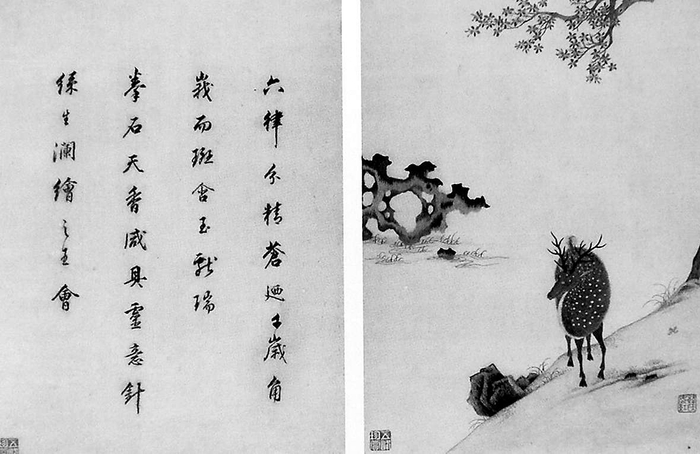 六律分精蒼廼千歲角
峩而斑含玉獻瑞
拳石天香咸具靈意針
綵生瀾繪之王會